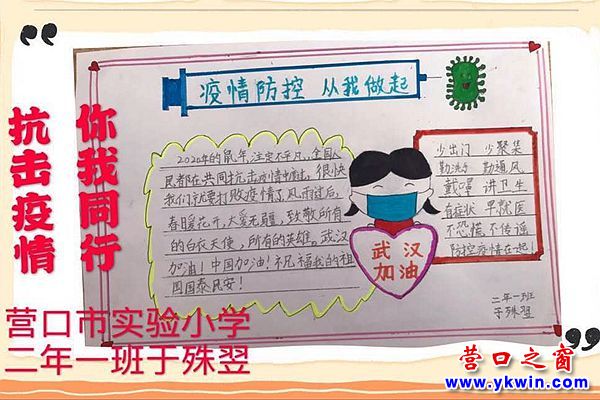 抗击疫情
你我同行
疫情防控 从我做起
2020年的鼠年,注定不平凡。全国人
民都在共同抗击疫情中度过。很快
我们就要打败疫情了,风雨过后,
春暖花开,大爱无疆,致敬所有
的白衣天使,所有的英雄。武汉
加油!中国加油!祈福我的祖
国国泰民安!
武汉
加油
少出门 少聚集
勤洗手 勤通风
戴口罩 讲卫生
有症状 早就医
不恐慌 不传谣
防控疫情在一起!
二年一班
于殊翌
营口市实验小学
二年一班于殊翌
营口之窗
www.ykwin.com